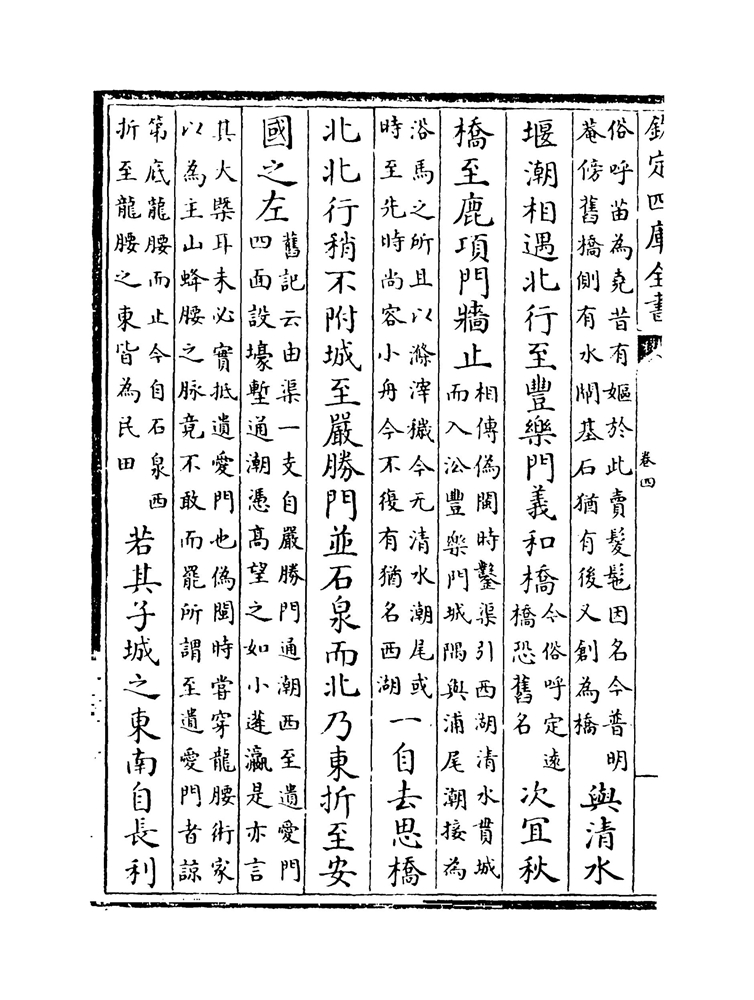 欽定四庫全書
卷四
俗呼苗為堯昔有嫗於此賣髮髢因名今普明
菴傍舊橋側有水閘基石猶有後又創為橋
與清水
堰潮相遇北行至豐樂門義和橋
今俗呼定遠
橋恐舊名
次冝秋
橋至鹿項門牆止
相傳偽閩時鑿渠引西湖清水貫城
而入㳂豐樂門城隅與浦尾潮接為
浴馬之所且以滌滓穢今无清水潮尾或
時至先時尚容小舟今不復有猶名西湖
一自去思橋
北北行稍不附城至嚴勝門並石泉而北乃東折至安
國之左
舊記云由渠一支自嚴勝門通潮西至遺愛門
四面設壕塹通潮憑髙望之如小蓬瀛是亦言
其大槩耳未必實抵遺愛門也偽閩時嘗穿龍腰術家
以為主山蜂腰之脉竟不敢而罷所謂至遺愛門者諒
第底龍腰而止今自石泉西
折至龍腰之東皆為民田
若其子城之東南自長利